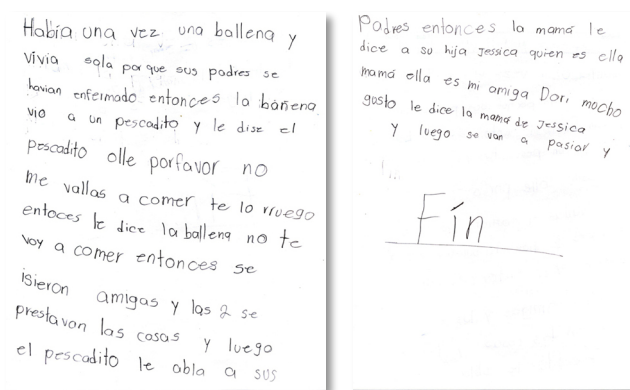 Había una vez una ballena y
vivía sola porque sus padres se
havian enfermado entonces la bañena
vio a un pescadito y le dise el
pescadito olle porfavor no
me vallas a comer te lo rruego
entoces le dice la ballena no te
voy a comer entonces se
isieron amigas y las 2 se
prestavan las cosas y luego
el pescadito le abla a sus
Padres entonces la mamá le
dice a su hija Jessica quien es ella
mamá ella es mi amiga Dori mocho
gusto le dice la mamá de Jessica
y luego se van a pasiar y
Fín